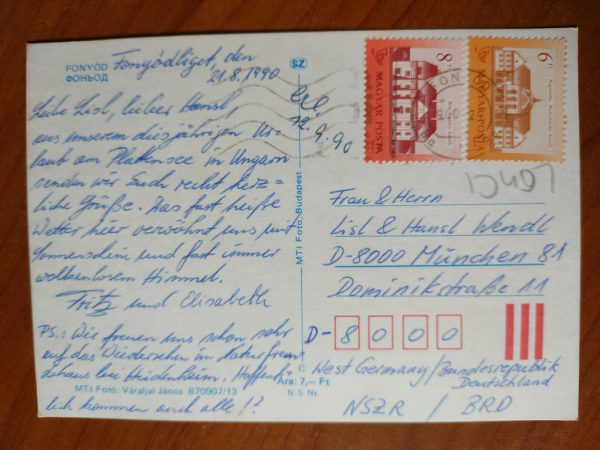 FONYÓD
ФОНЬОД
SZ
Fonyódliget, den
21.8.1990
Liebe Lisl, lieber Hansl,
aus unserem diesjährigen Ur-
laub am Plattensee in Ungarn
senden wir Euch recht herz=
liche Grüße. Das fast heiße
Wetter hier verwöhnt uns mit
Sonnenschein und fast immer
wolkenlosem Himmel.
Fritz und Elisabeth
PS.: Wir freuen uns schon sehr
auf das Wiedersehen im Naturfreun
dehaus bei Heidenheim. Hoffent=
lich kommen auch alle!?
MTI Fotó: Váraljai János 870907/13
MTI Fotó, Budapest
C
Ára: 7,– Ft
N. S. Ny.
erl.
12.9.90
8 Ft
MAGYAR POSTA
6 Ft
MAGYAR POSTA
Frau & Herrn
Lisl & Hansl Wendl
D-8000 München 81
Dominikstraße 11
D- 8 0 0 0
West Germany/Bundesrepublik
Deutschland
NSZK / BRD